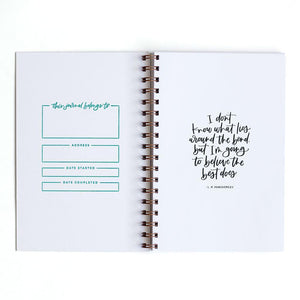 this journal belongs to
ADDRESS
DATE STARTED
DATE COMPLETED
I don't
know what lies
around the bend
but I'm going
to believe the
best does
L. M. MONTGOMERY